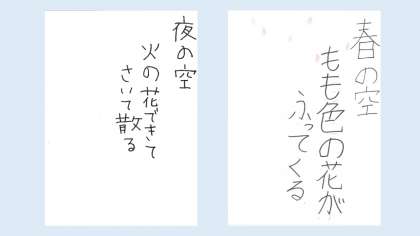 春の空
もも色の花が
ふってくる
夜の空
火の花できて
さいて散る